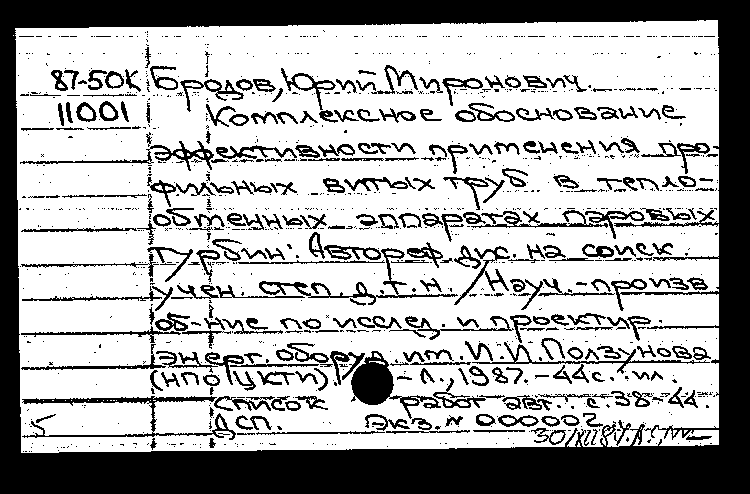 87-50К Бродов, Юрий Миронович.
11001 Комплексное обоснование
эффективности применения про-
фильных витых труб в тепло-
обменных аппаратах паровых
турбин: Автореф. дис. на соиск.
учен. степ. д.т.н. / Науч.-произв.
об-ние по исслед. и проектир.
энерг. оборуд. им. И.И. Ползунова
(НПО ЦКТИ). - Л., 1987. - 44с.: ил.
Список работ авт.: с. 38-44.
ДСП. Экз. № 000002